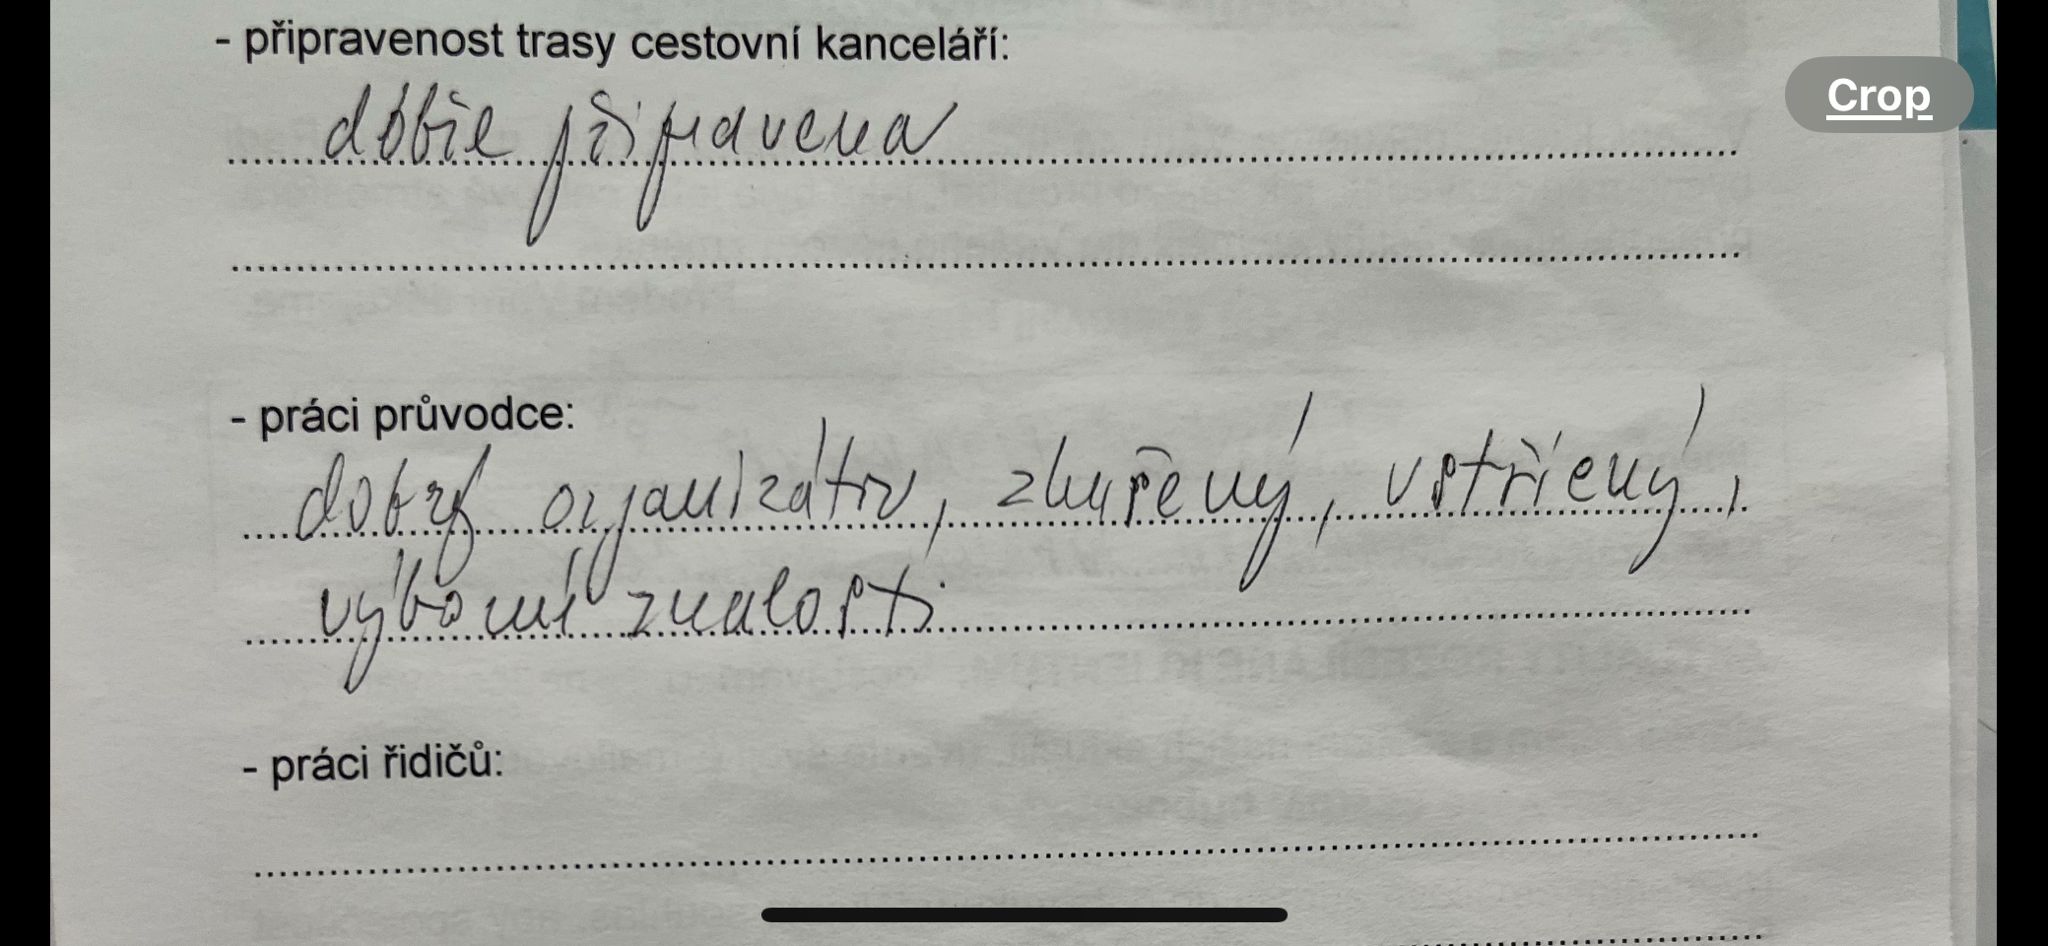 - připravenost trasy cestovní kanceláří:
dobře připravena
- práci průvodce:
dobrý organizátor, zkušený, vstřícný,
výborné znalosti
- práci řidičů:
Crop